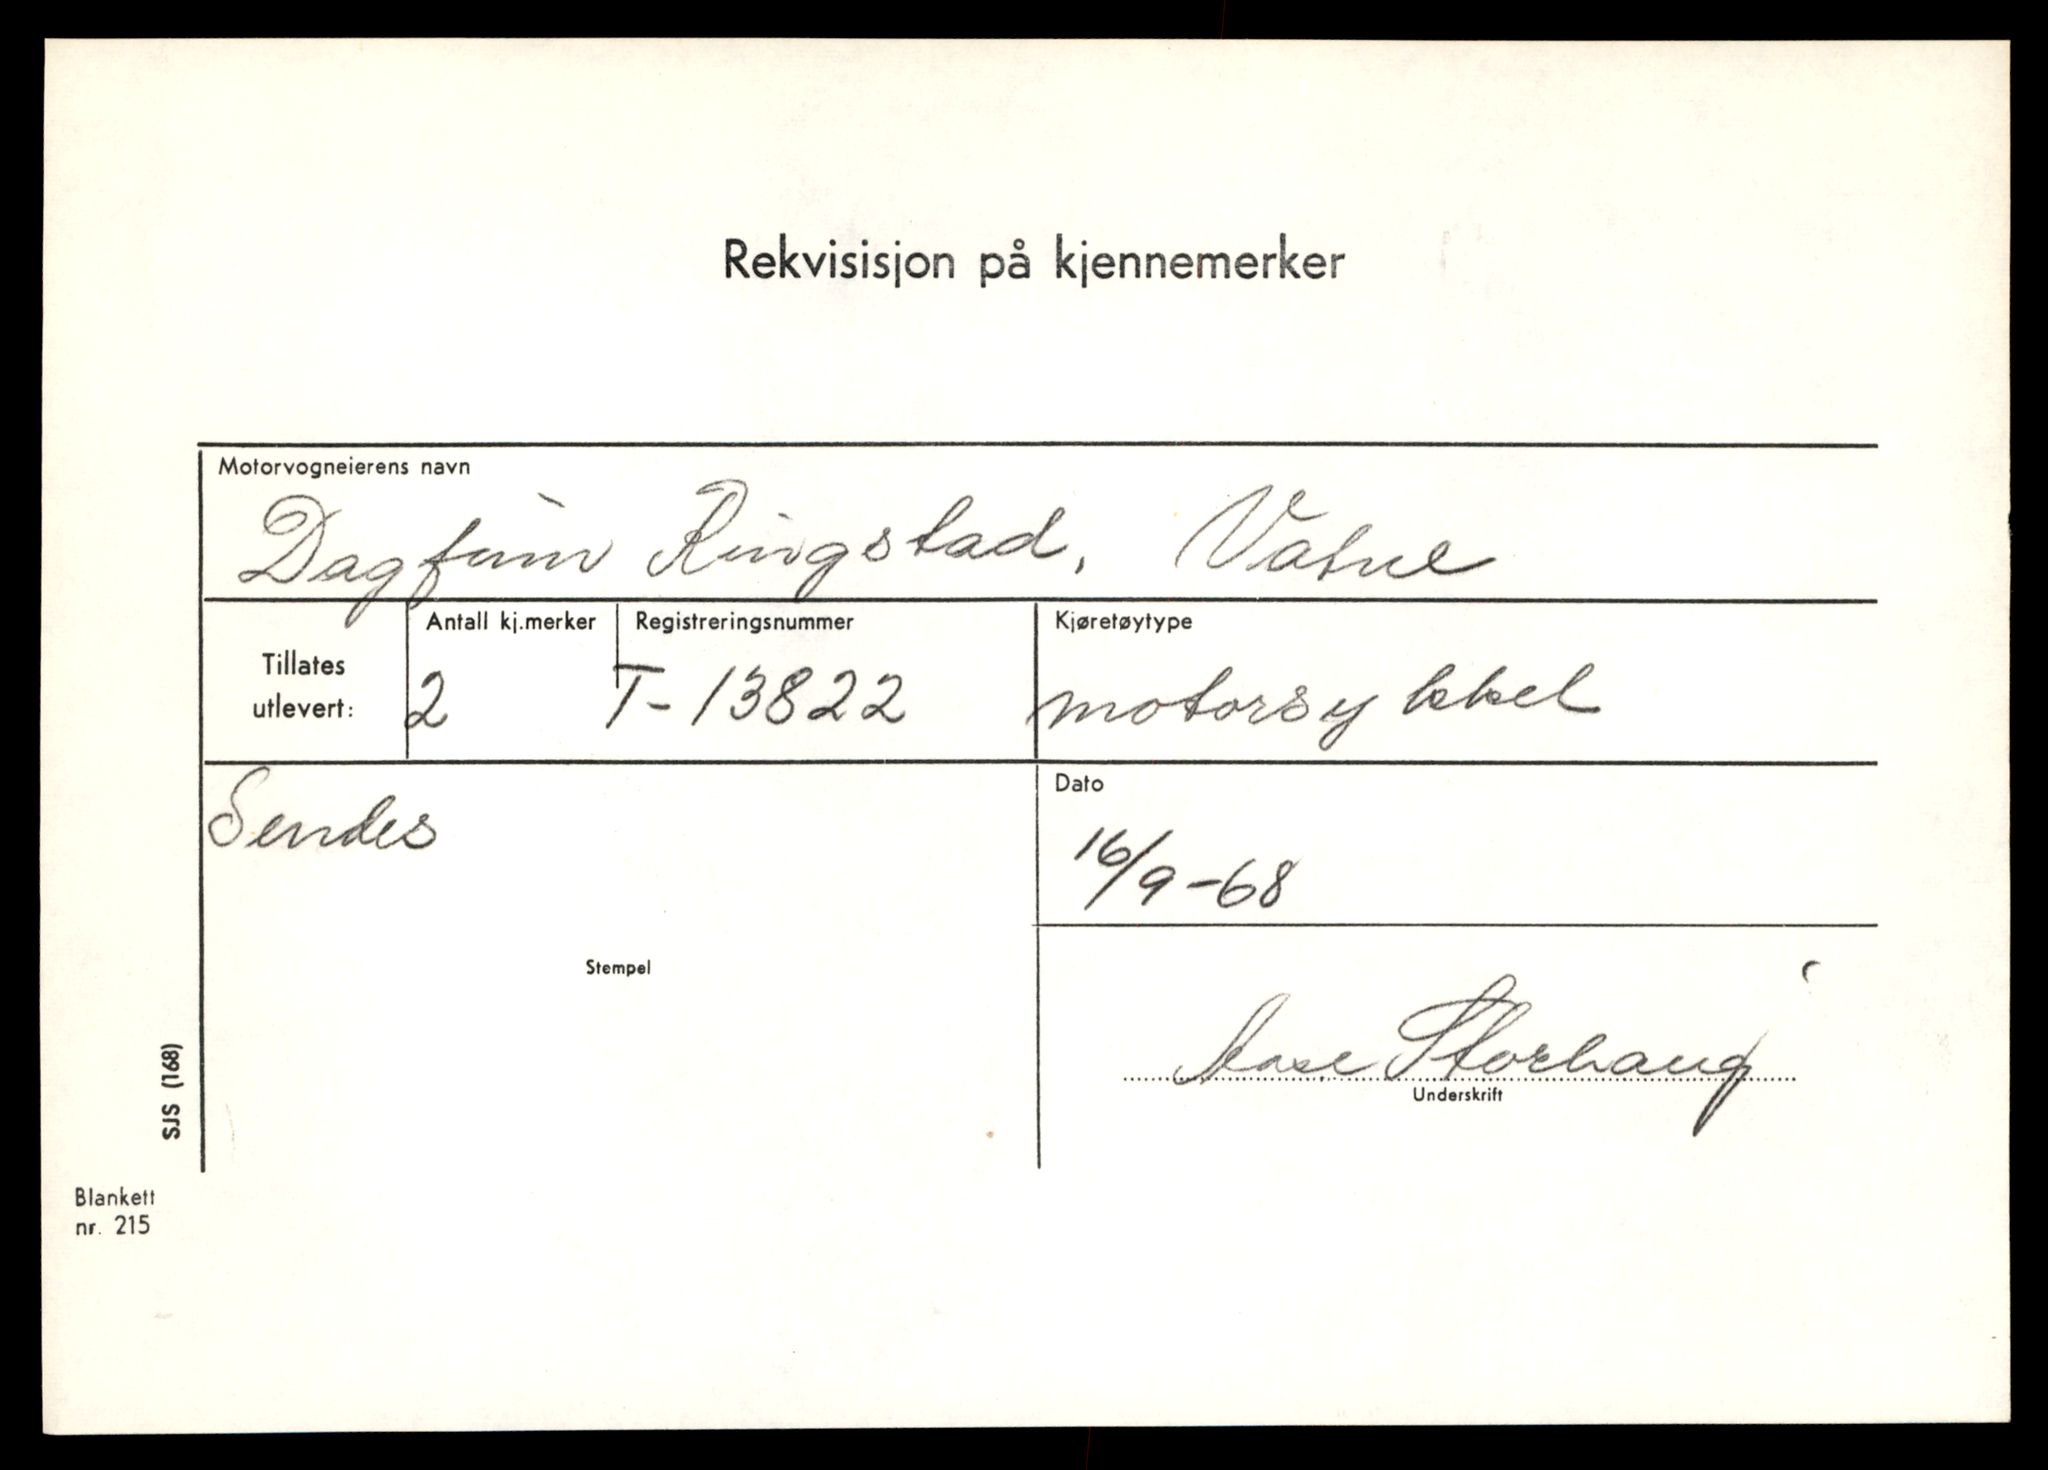 Rekvisisjon på kjennemerker
Motorvogneierens navn
Dagfinn Ringstad, Vatne
Tillates utlevert:
Antall kj.merker
2
Registreringsnummer
T-13822
Kjøretøytype
motorsykkel
Sendes
Dato
16/9-68
Stempel
Aase Storhaug
Underskrift
SJS (168)
Blankett
nr. 215